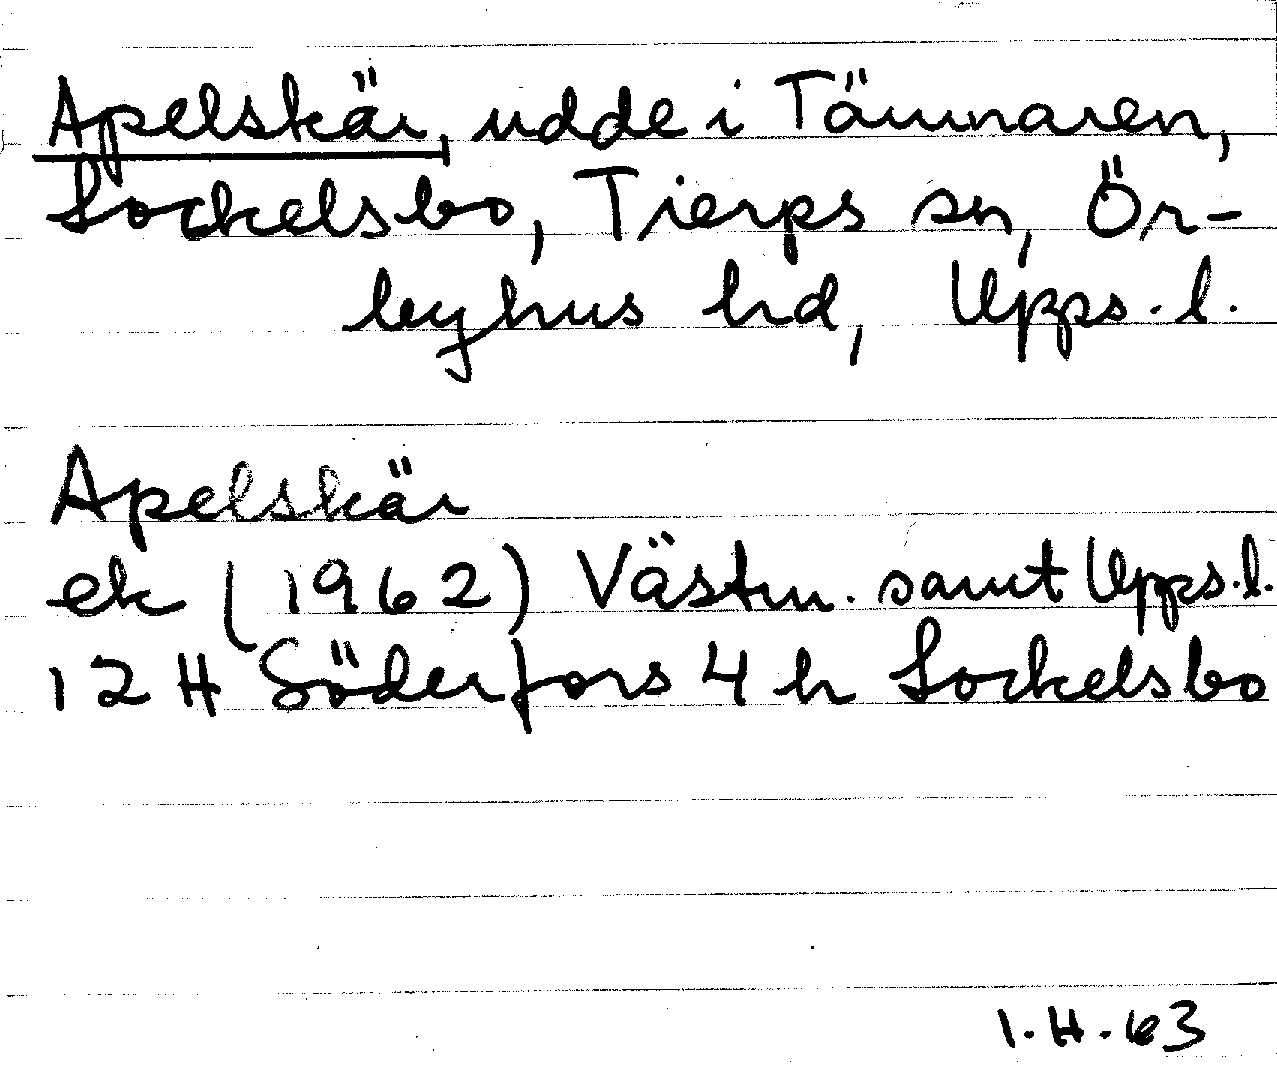 Apelskär, udde i Tämnaren,
Sockelsbo, Tierps sn, Ör-
byhus hd, Upps. l.
Apelskär
ek (1962) Västm. samt Upps. l.
12 H Söderfors 4 h Sockelsbo
1. H. 63